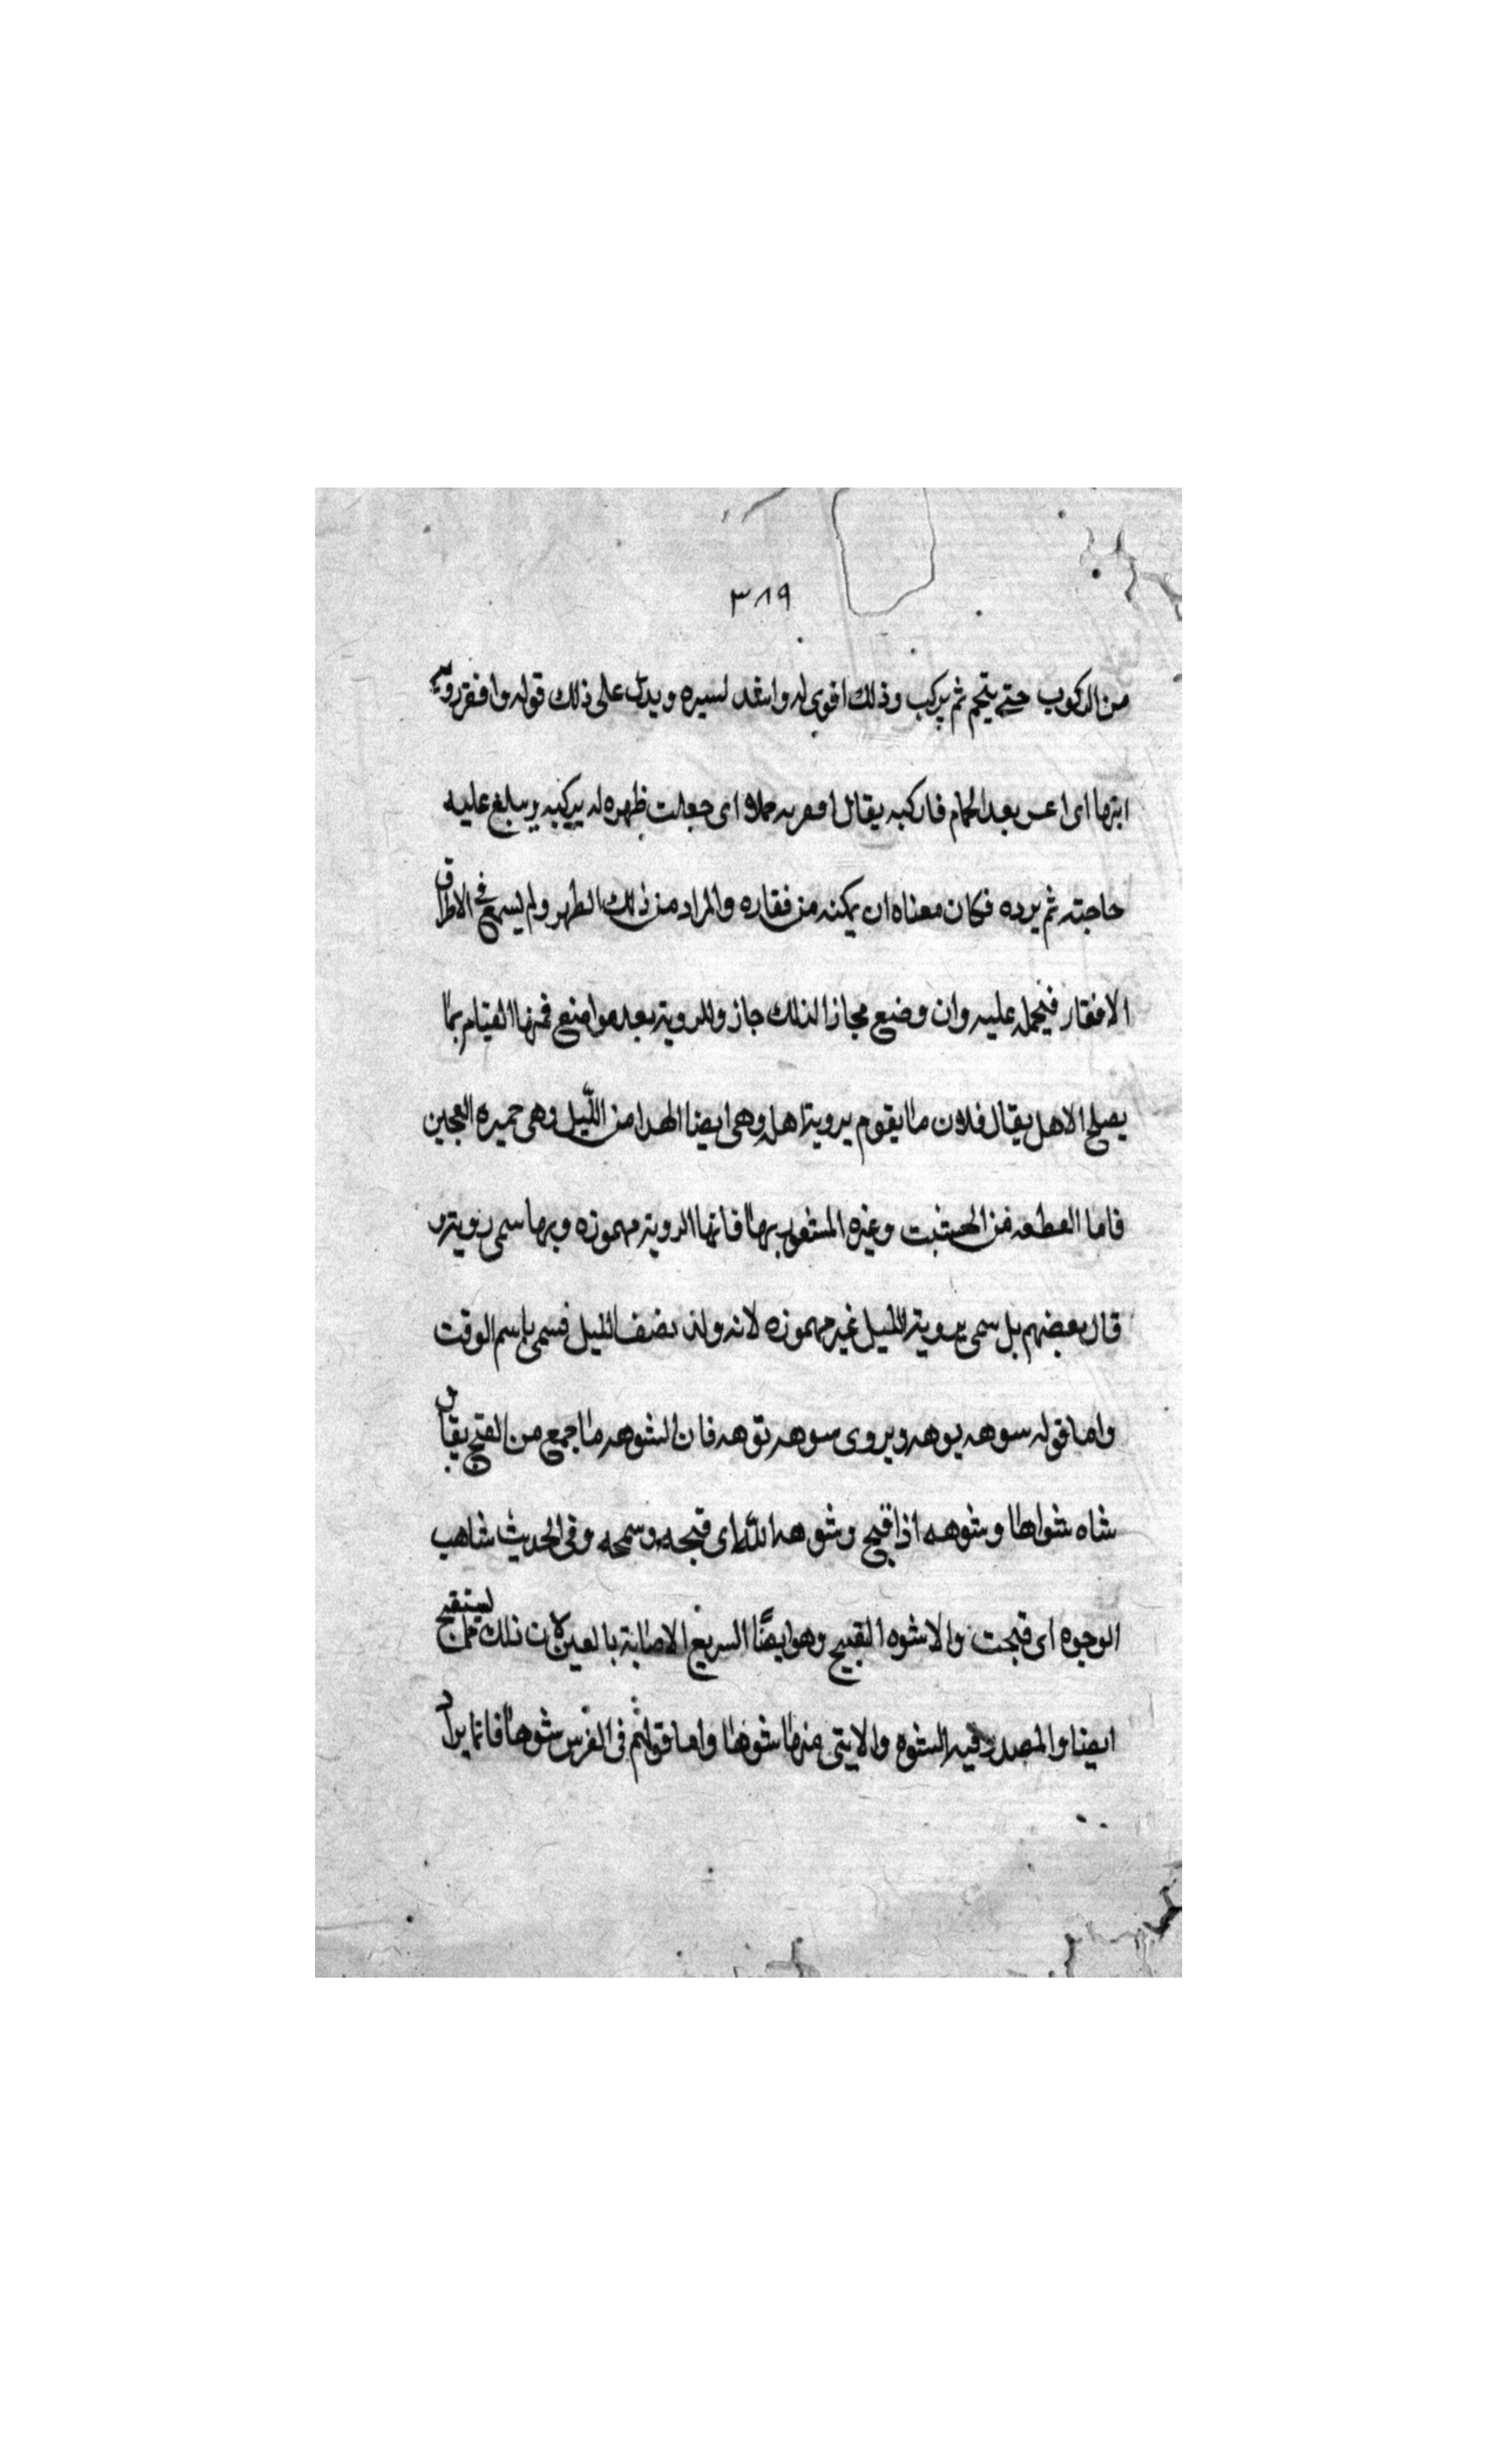 ٣٨٩
من الركوب حتى يتجم ثم يركب وذلك اقوى له واشد لسيره ويدل على ذلك قوله وافقر
ابتها اى بعد الجمام فاركبه يقال اى جعلت ظهره له يركبه ويبلغ عليه
حاجته ثم يرده فكان معناه ان يمكنه من فقاره والمراد من ذلك الظهر ولم يسمع فى الاطراق
الافقار فيحمل عليه وان وضع مجازا لذلك جاز وللروية بعد مواضع فمنها القيام بما
يصلح الاهل يقال فلان ما يقوم بروية اهله وهى ايضا من الليل وهى خميره العجين
فاما القطعه من الخشب وغيره المشعوب بها فانها الروية مهموزه وبها سمى روية
قال بعضهم بل سمى بروية الليل غير مهموزه لانه ولد نصف الليل فسمى باسم الوقت
واما قوله سوهه بوهه ويروى سوهه توهه فان الشوهه ما جمع من القبح يقال
شاه شواها وشوهه اذا قبح وشوهه الله اى قبحه وسمجه وفى الحديث شاهت
الوجوه اى قبحت والاشوه القبيح وهو ايضًا السريع الاصابة بالعين لان ذلك يستقبح
ايضا والمصدر فيه الشوه والانثى منها شوها واما قولهم فى الفرس شوها فانما يراد